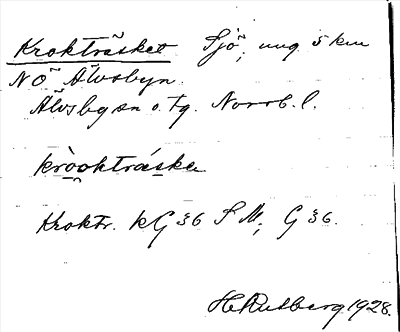 Krokträsket Sjö, ung. 5 km
NÖ Älvsbyn.
Älvsbyn s. o. tg. Norrb. l.
kròoktráska
Kroktr. KG 36 S M; G 36.
H. Rutberg 1928.